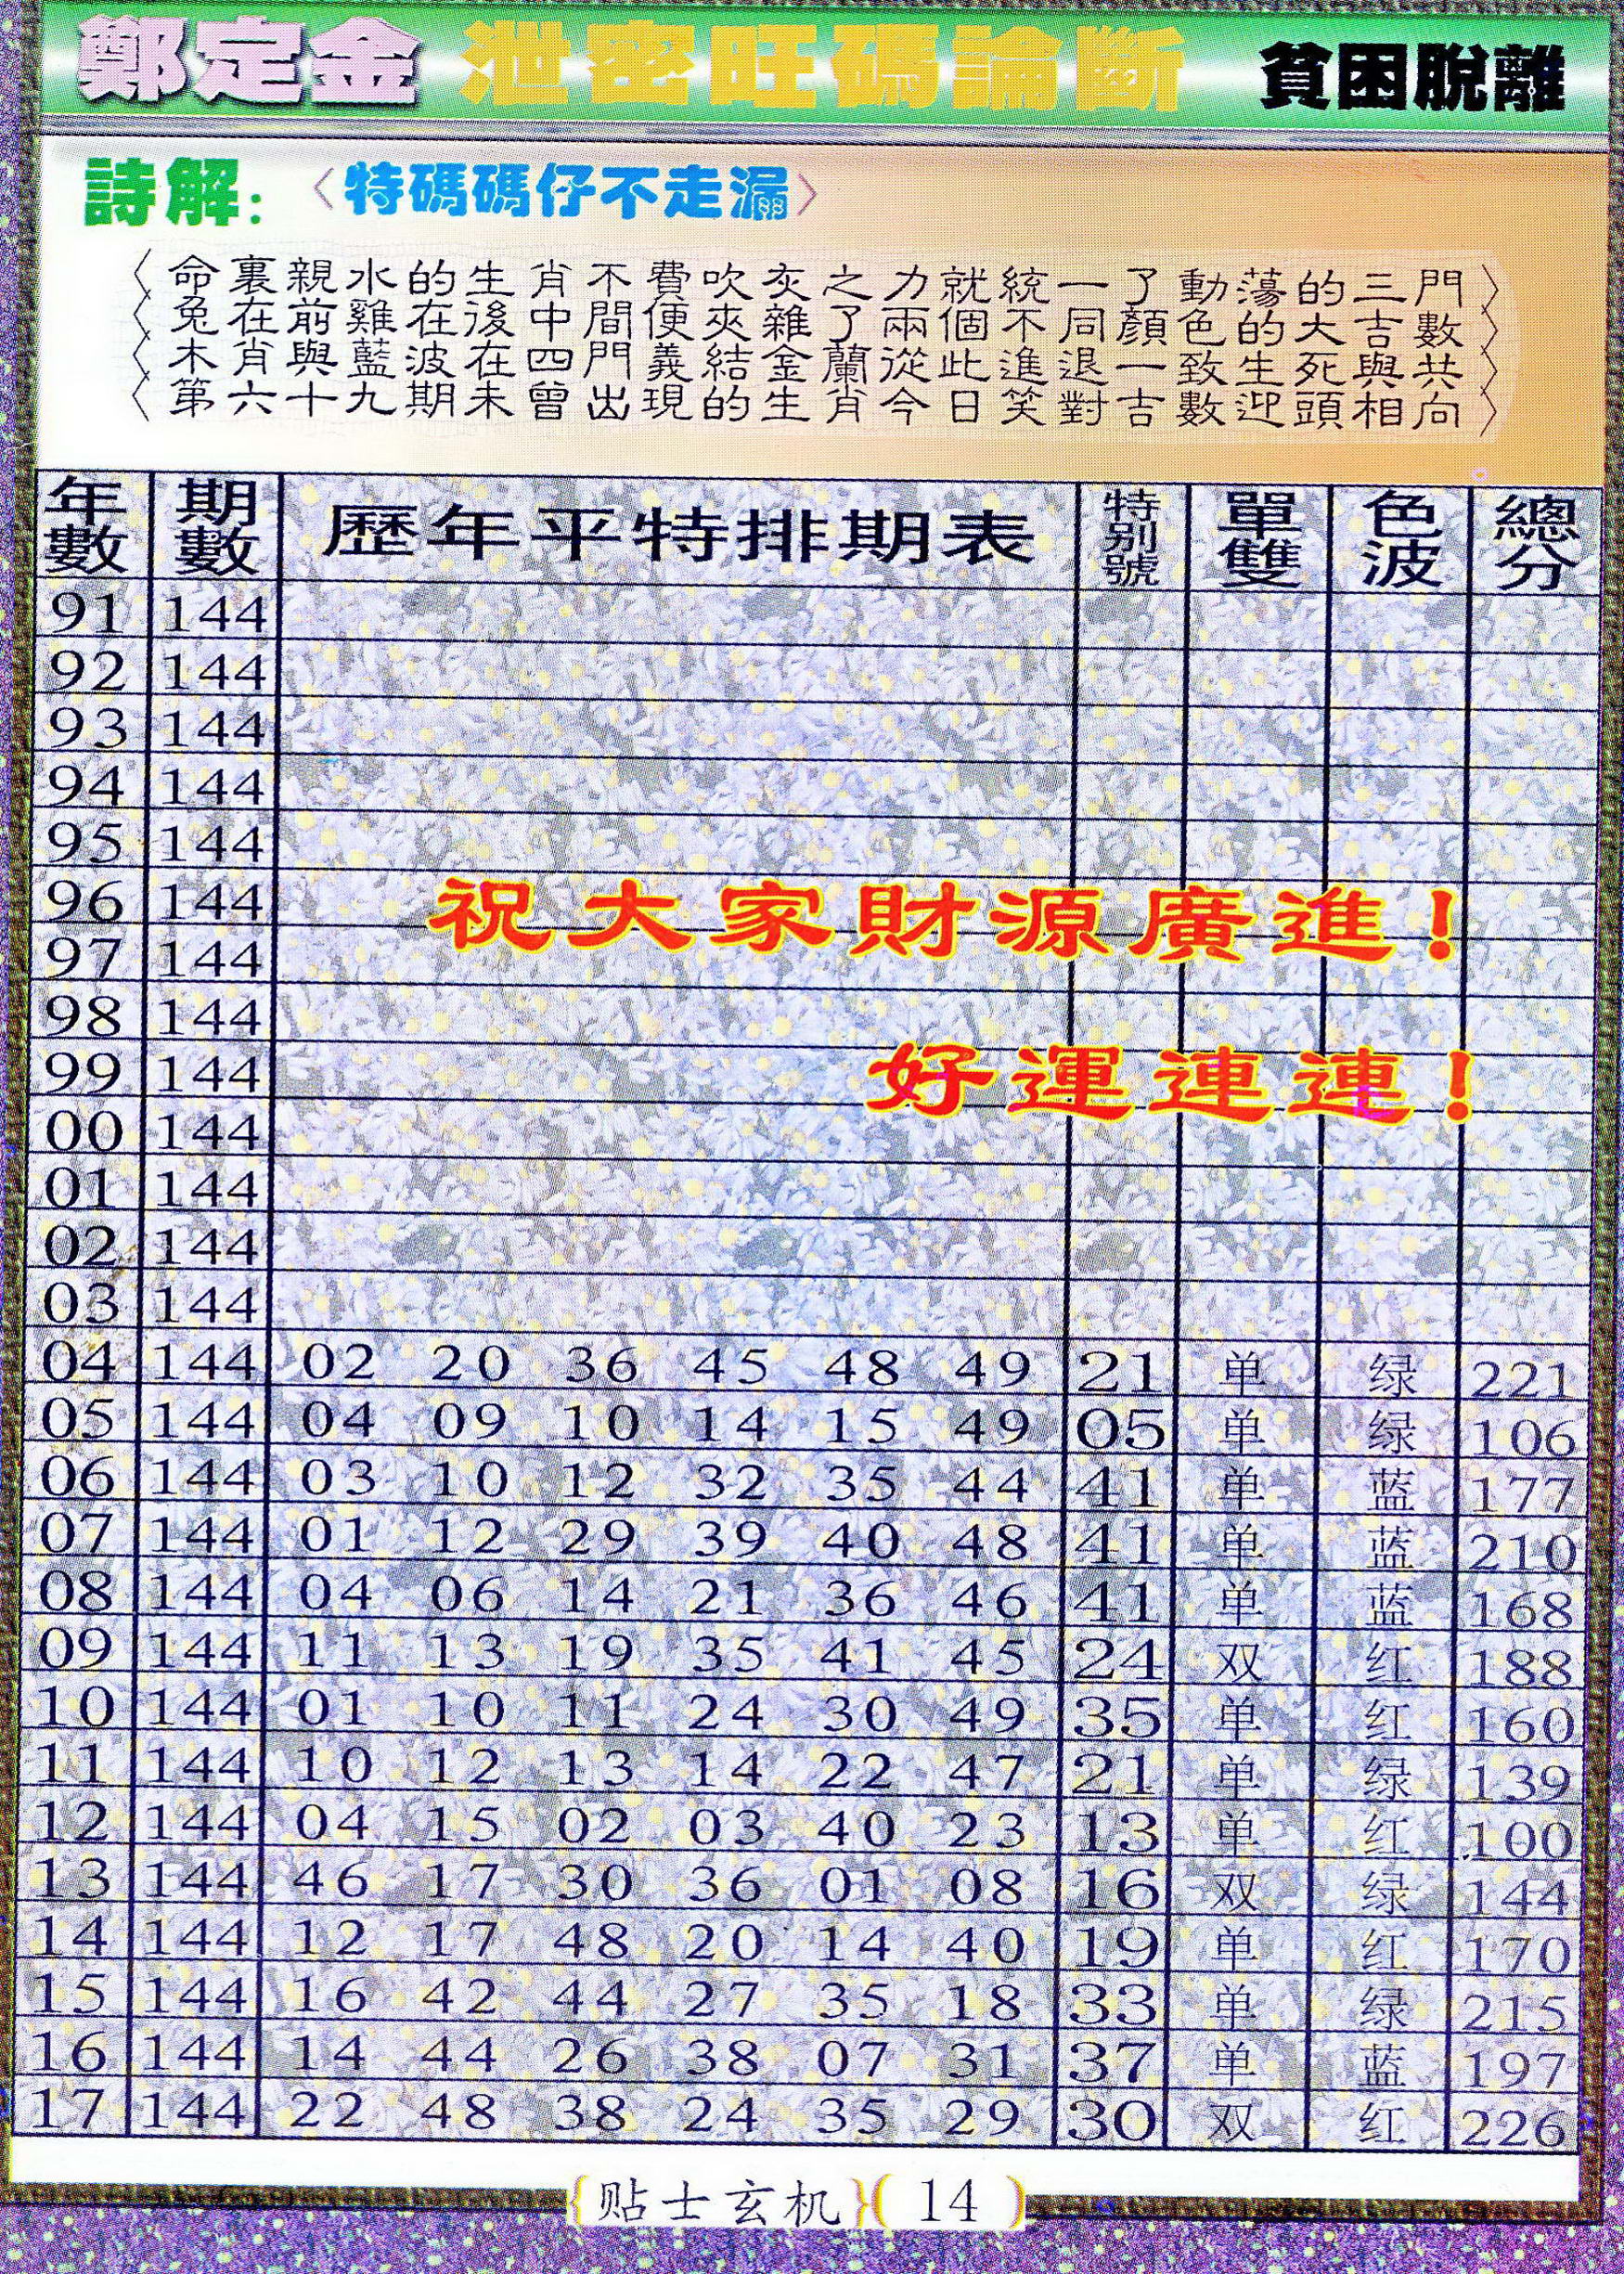 鄭定金 泄密旺碼論斷 貧困脫離
詩解: 〈特碼碼仔不走漏〉
〈命裏親水的生肖不費吹灰之力就統一了動蕩的三門〉
〈兔在前雞在後中間便夾雜了兩個不同顏色的大吉數〉
〈木肖與藍波在四門義結金蘭從此進退一致生死與共〉
〈第六十九期未曾出現的生肖今日笑對吉數迎頭相向〉
年數 期數 歷年平特排期表 特别號 單雙 色波 總分
91 144
92 144
93 144
94 144
95 144
96 144
祝大家財源廣進!
97 144
98 144
99 144
好運連連!
00 144
01 144
02 144
03 144
04 144 02 20 36 45 48 49 21 单 绿 221
05 144 04 09 10 14 15 49 05 单 绿 106
06 144 03 10 12 32 35 44 41 单 蓝 177
07 144 01 12 29 39 40 48 41 单 蓝 210
08 144 04 06 14 21 36 46 41 单 蓝 168
09 144 11 13 19 35 41 45 24 双 红 188
10 144 01 10 11 24 30 49 35 单 红 160
11 144 10 12 13 14 22 47 21 单 绿 139
12 144 04 15 02 03 40 23 13 单 红 100
13 144 46 17 30 36 01 08 16 双 绿 144
14 144 12 17 48 20 14 40 19 单 红 170
15 144 16 42 44 27 35 18 33 单 绿 215
16 144 14 44 26 38 07 31 37 单 蓝 197
17 144 22 48 38 24 35 29 30 双 红 226
{贴士玄机}(14)